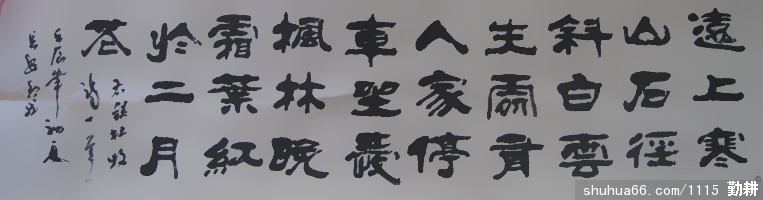 遠上寒
山石徑
斜白雲
生處有
人家停
車坐愛
楓林晚
霜葉紅
於二月
花
右錄杜牧
詩一首
shuhua66.com/1115 勤耕